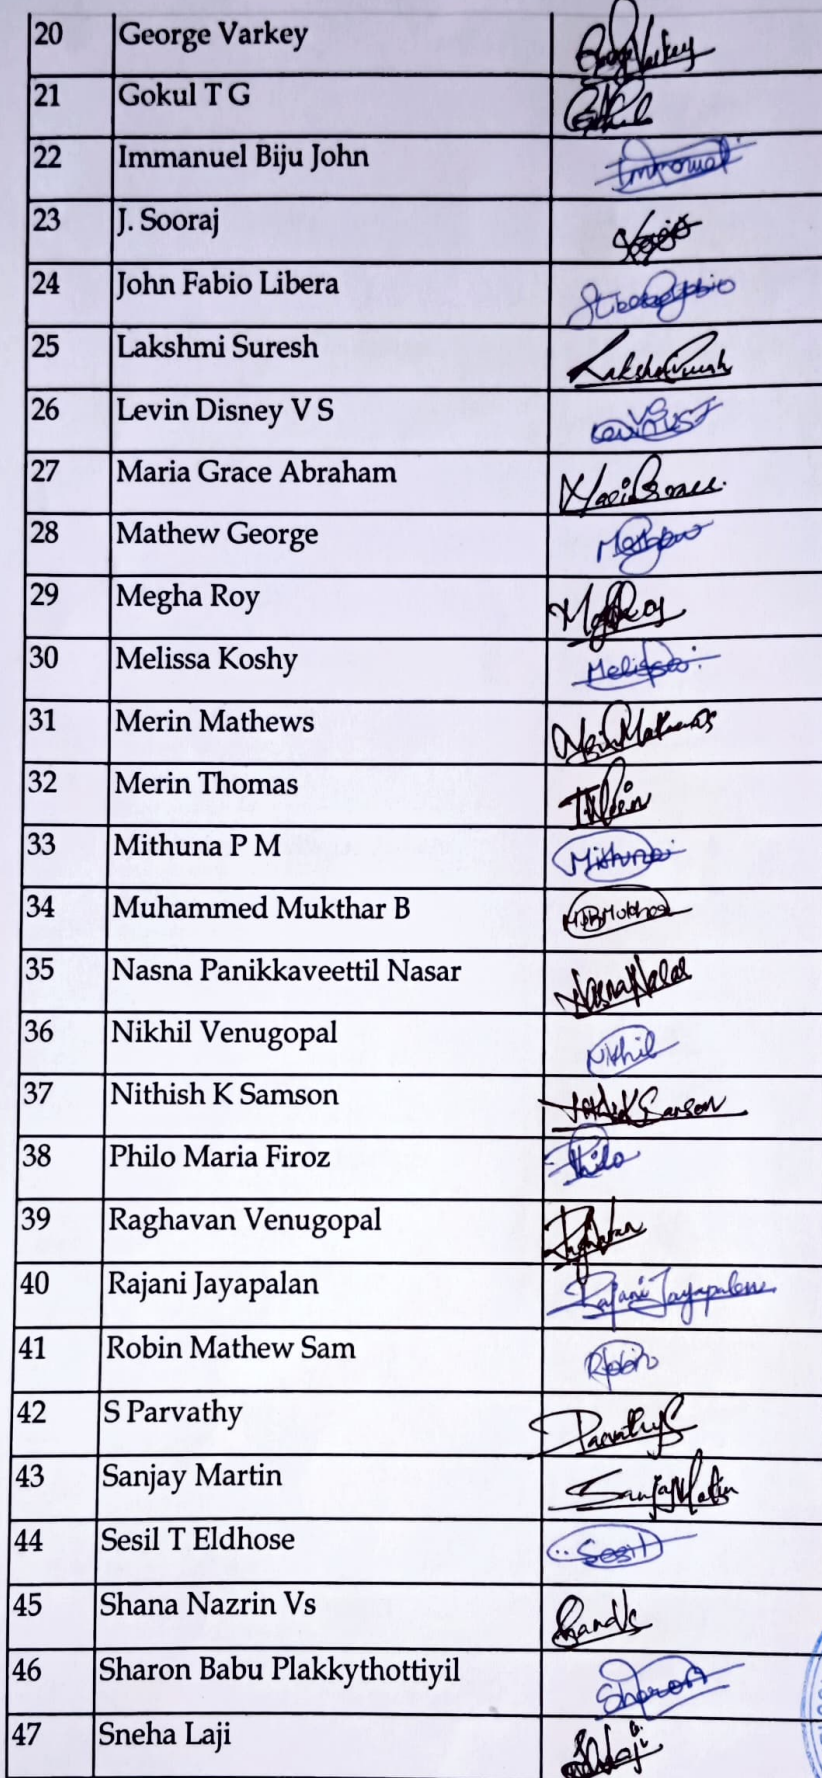 20 George Varkey George Varkey
21 Gokul T G Gokul
22 Immanuel Biju John Immanuel
23 J. Sooraj
24 John Fabio Libera
25 Lakshmi Suresh Lakshmi Suresh
26 Levin Disney V S
27 Maria Grace Abraham Maria Grace
28 Mathew George Mathew
29 Megha Roy Megha Roy
30 Melissa Koshy Melissa
31 Merin Mathews Merin Mathews
32 Merin Thomas
33 Mithuna P M Mithuna
34 Muhammed Mukthar B
35 Nasna Panikkaveettil Nasar Nasna Nasar
36 Nikhil Venugopal Nikhil
37 Nithish K Samson Nithish K Samson
38 Philo Maria Firoz Philo
39 Raghavan Venugopal Raghavan
40 Rajani Jayapalan Rajani Jayapalan
41 Robin Mathew Sam Robin
42 S Parvathy Parvathy S
43 Sanjay Martin Sanjay Martin
44 Sesil T Eldhose Sesil
45 Shana Nazrin Vs Shana Vs
46 Sharon Babu Plakkythottiyil Sharon
47 Sneha Laji